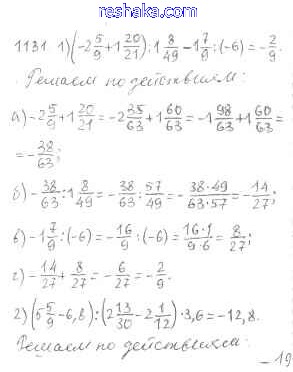 reshaka.com
1131. 1) (-2 5/9 + 1 20/21) : 1 8/49 - 1 7/9 : (-6) = -2/9.
Решаем по действиям:
а) -2 5/9 + 1 20/21 = -2 35/63 + 1 60/63 = -1 98/63 + 1 60/63 =
= -38/63;
б) -38/63 : 1 8/49 = -38/63 : 57/49 = -38·49/63·57 = -14/27;
в) -1 7/9 : (-6) = -16/9 : (-6) = 16·1/9·6 = 8/27;
г) -14/27 + 8/27 = -6/27 = -2/9.
2) (5 5/9 - 6,8) : (2 13/30 - 2 1/12) · 3,6 = -12,8.
Решаем по действиям:
- 19